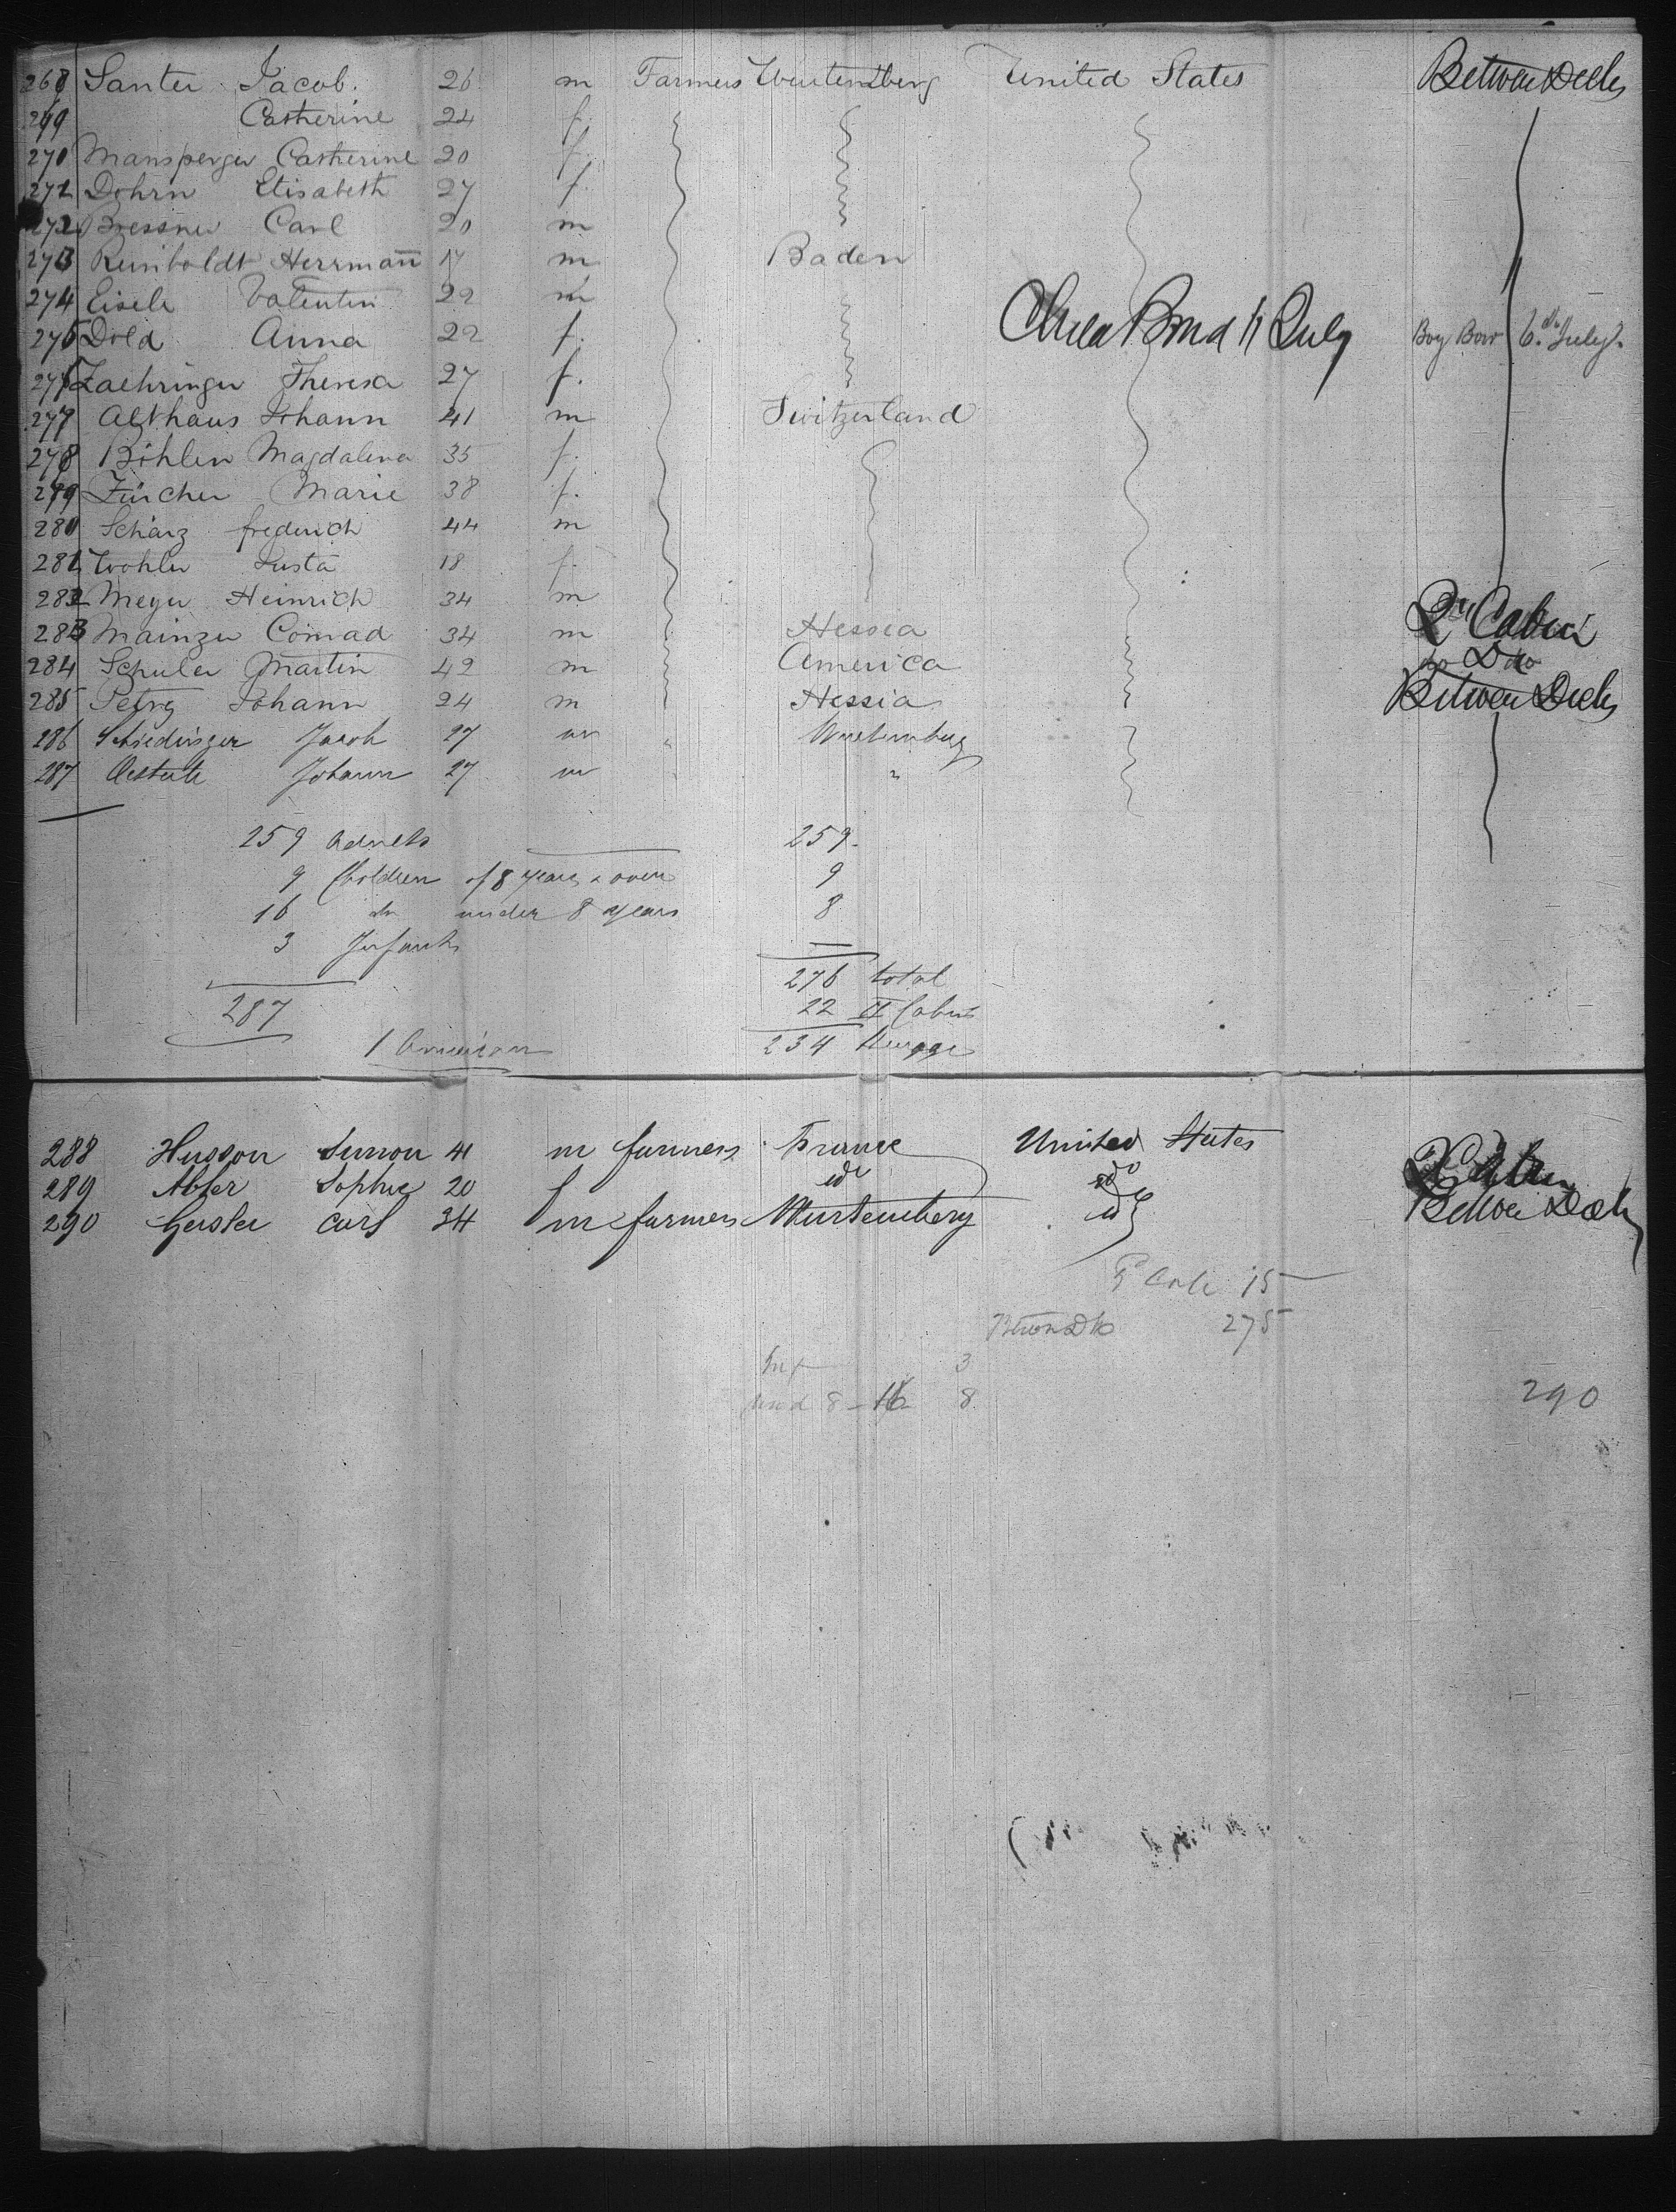 268 Santer Jacob. 26 m Farmers Wurtemberg United States Between Decks
269 Catherine 24 f.
270 Mansperger Catherine 20 f.
271 Dohrn Elisabeth 27 f.
272 Bressner Carl 20 m
273 Reinboldt Herrmann 17 m Baden
274 Eisele Valentin 22 m
275 Dold Anna 22 f. Child Born 11 July Boy Born 6th July.
276 Zaehringer Theresa 27 f.
277 Althaus Johann 41 m Switzerland
278 Böhlen Magdalena 35 f.
279 Zürcher Marie 38 f.
280 Schärz frederich 44 m
281 Wohler Susta 18 f.
282 Meyer Heinrich 34 m
283 Mainzer Conrad 34 m Hessia 2d Cabin
284 Schuler Martin 42 m America do Do
285 Petry Johann 24 m Hessia Between Decks
286 Schiedinger Jacob 27 m " Wurtemburg
287 Johann 27 m "
259 adults 259.
9 Children of 8 years & over 9
16 do under 8 years 8
3 Infants
276 total
287 22 II Cabin
1 American 234 Steerage
288 Husson Simon 41 m farmers France United States
289 Abler Sophie 20 f do do
290 Geisler Carl 34 m farmers Wurtemberg id Between Decks
15
275
Inf 3
und 8 - 16 8
290